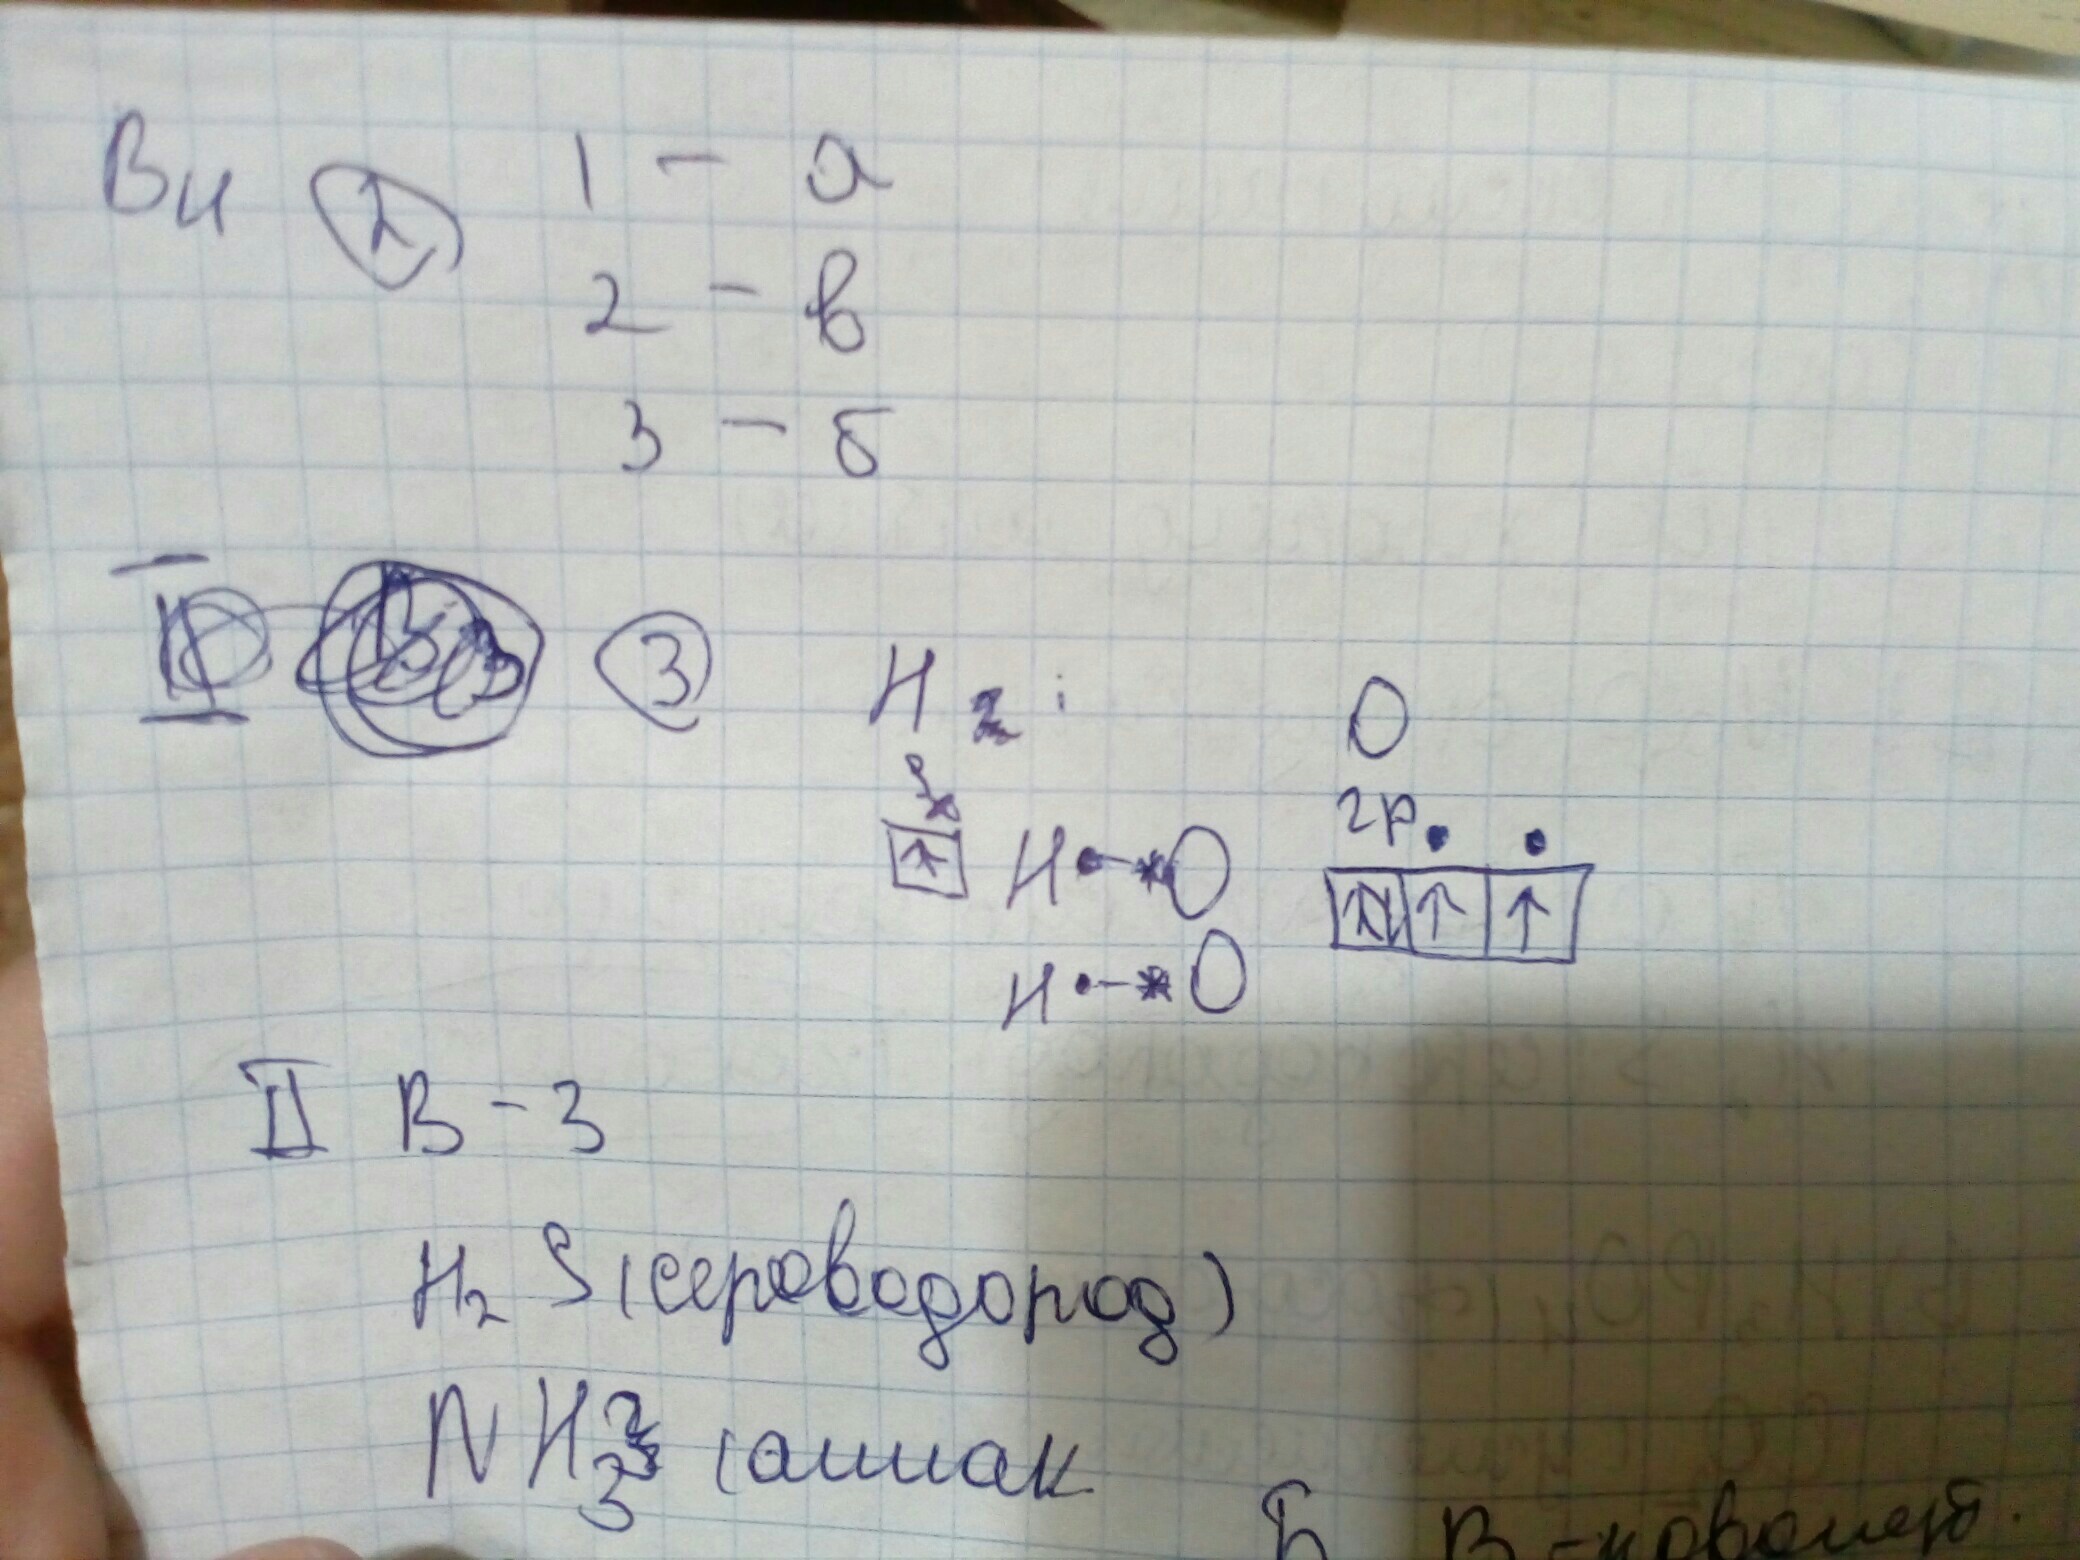 Ви 2 1 - а
2 - в
3 - б
II 3 H2 : O
S 2p
H O
H O
II В - 3
H2 S (сероводород)
NH3 (аммиак
Б В - ковалент.